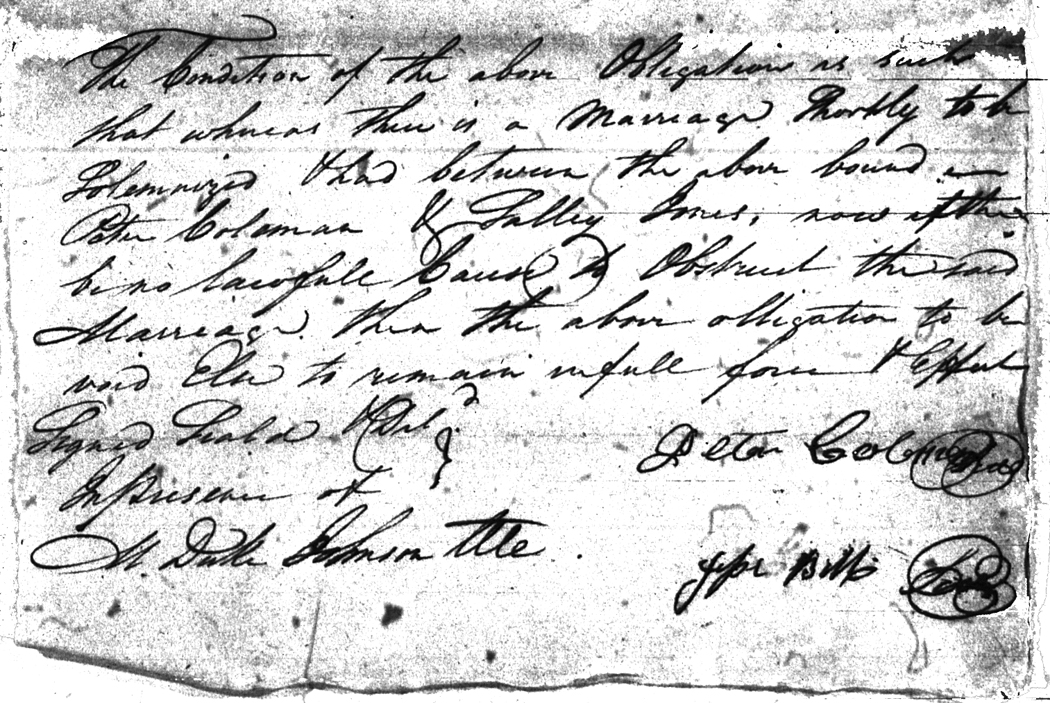 The Condition of the above Obligation is such
that whereas there is a Marriage Shortly to be
Solemnized & had between the above bound
Peter Coleman & Salley Jones, now if there
be no lawfull Cause to Obstruct the said
Marriage. then the above obligation to be
void Else to remain in full force & Effect
Signed Seald & Deld
In Presence of
Peter Coleman Seal
M Duke Johnson
Jesse Bills Seal